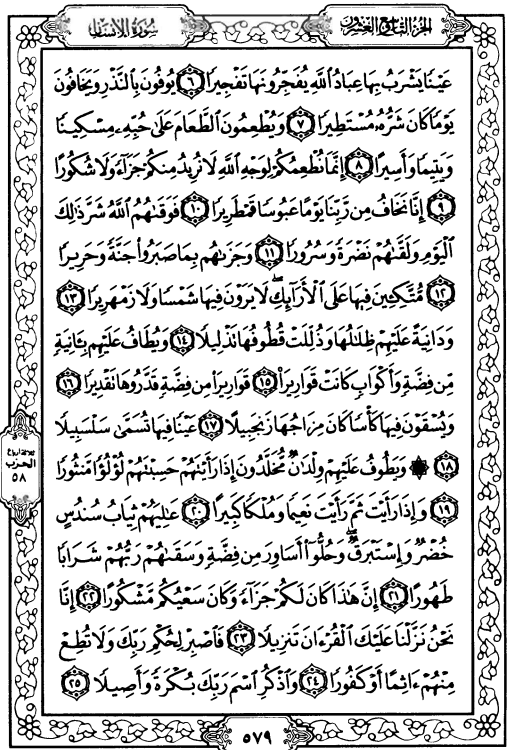 الجزء التاسع والعشرون
سورة الإنسان
عَيْنًا يَشْرَبُ بِهَا عِبَادُ ٱللَّهِ يُفَجِّرُونَهَا تَفْجِيرًا ٦ يُوفُونَ بِٱلنَّذْرِ وَيَخَافُونَ
يَوْمًا كَانَ شَرُّهُۥ مُسْتَطِيرًا ٧ وَيُطْعِمُونَ ٱلطَّعَامَ عَلَىٰ حُبِّهِۦ مِسْكِينًا
وَيَتِيمًا وَأَسِيرًا ٨ إِنَّمَا نُطْعِمُكُمْ لِوَجْهِ ٱللَّهِ لَا نُرِيدُ مِنكُمْ جَزَآءً وَلَا شُكُورًا
٩ إِنَّا نَخَافُ مِن رَّبِّنَا يَوْمًا عَبُوسًا قَمْطَرِيرًا ١٠ فَوَقَىٰهُمُ ٱللَّهُ شَرَّ ذَٰلِكَ
ٱلْيَوْمِ وَلَقَّىٰهُمْ نَضْرَةً وَسُرُورًا ١١ وَجَزَىٰهُم بِمَا صَبَرُوا۟ جَنَّةً وَحَرِيرًا
١٢ مُّتَّكِـِٔينَ فِيهَا عَلَى ٱلْأَرَآئِكِ ۖ لَا يَرَوْنَ فِيهَا شَمْسًا وَلَا زَمْهَرِيرًا ١٣
وَدَانِيَةً عَلَيْهِمْ ظِلَـٰلُهَا وَذُلِّلَتْ قُطُوفُهَا تَذْلِيلًا ١٤ وَيُطَافُ عَلَيْهِم بِـَٔانِيَةٍ
مِّن فِضَّةٍ وَأَكْوَابٍ كَانَتْ قَوَارِيرَا۠ ١٥ قَوَارِيرَا۟ مِن فِضَّةٍ قَدَّرُوهَا تَقْدِيرًا ١٦
وَيُسْقَوْنَ فِيهَا كَأْسًا كَانَ مِزَاجُهَا زَنجَبِيلًا ١٧ عَيْنًا فِيهَا تُسَمَّىٰ سَلْسَبِيلًا
١٨ ۞ وَيَطُوفُ عَلَيْهِمْ وِلْدَٰنٌ مُّخَلَّدُونَ إِذَا رَأَيْتَهُمْ حَسِبْتَهُمْ لُؤْلُؤًا مَّنثُورًا
١٩ وَإِذَا رَأَيْتَ ثَمَّ رَأَيْتَ نَعِيمًا وَمُلْكًا كَبِيرًا ٢٠ عَـٰلِيَهُمْ ثِيَابُ سُندُسٍ
خُضْرٌ وَإِسْتَبْرَقٌ ۖ وَحُلُّوٓا۟ أَسَاوِرَ مِن فِضَّةٍ وَسَقَىٰهُمْ رَبُّهُمْ شَرَابًا
طَهُورًا ٢١ إِنَّ هَـٰذَا كَانَ لَكُمْ جَزَآءً وَكَانَ سَعْيُكُم مَّشْكُورًا ٢٢ إِنَّا
نَحْنُ نَزَّلْنَا عَلَيْكَ ٱلْقُرْءَانَ تَنزِيلًا ٢٣ فَٱصْبِرْ لِحُكْمِ رَبِّكَ وَلَا تُطِعْ
مِنْهُمْ ءَاثِمًا أَوْ كَفُورًا ٢٤ وَٱذْكُرِ ٱسْمَ رَبِّكَ بُكْرَةً وَأَصِيلًا ٢٥
ثلاثة أرباع
الحزب
٥٨
٥٧٩